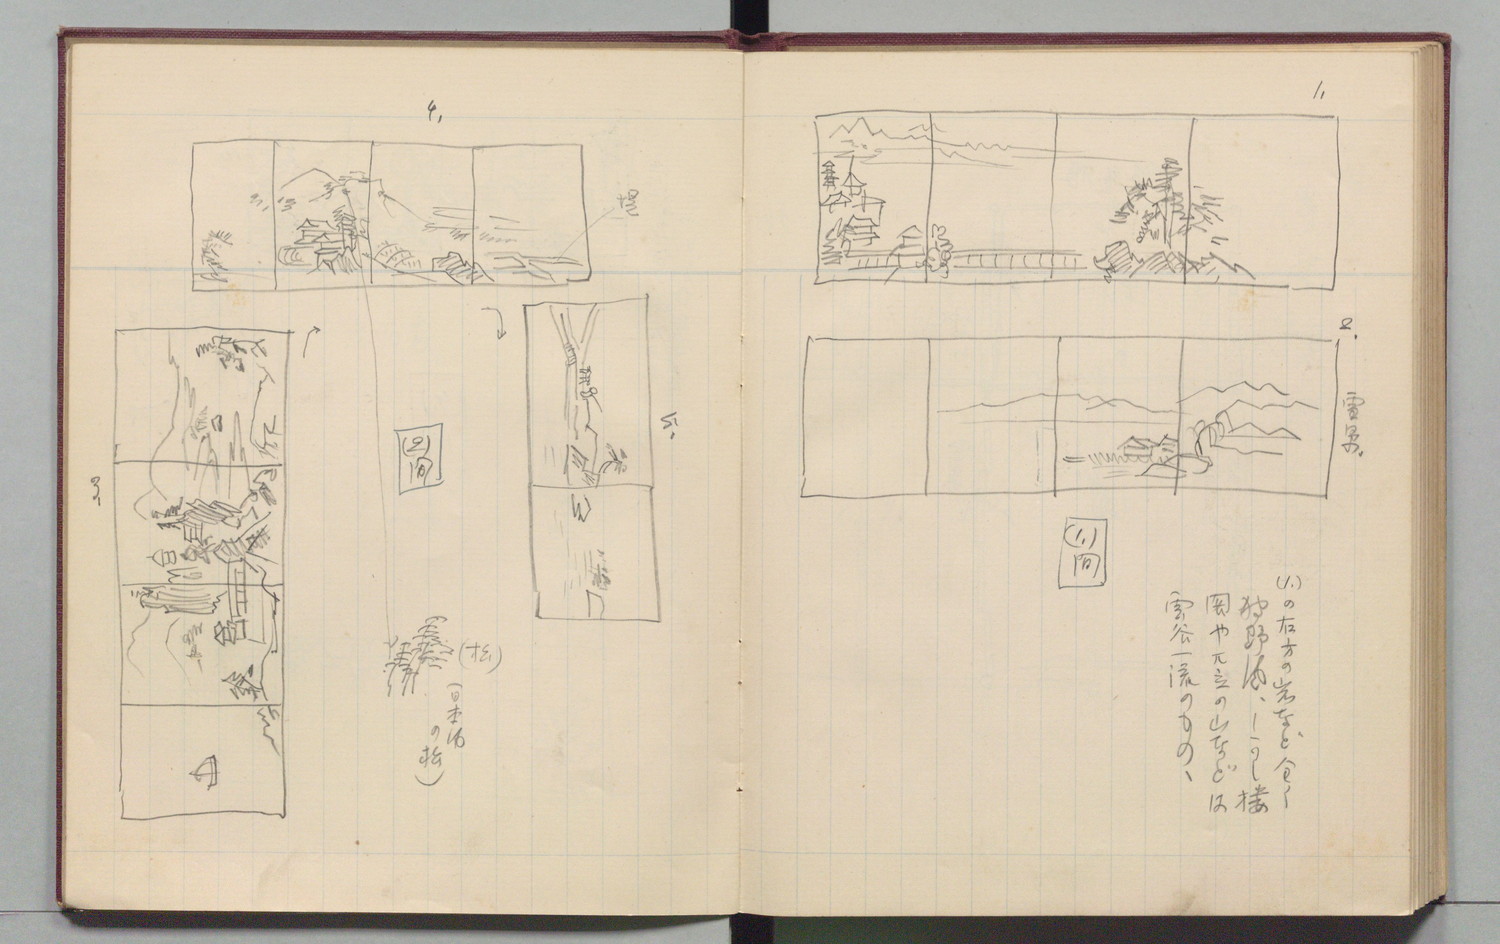 1,
2.
雪景.
(1.)
間
(1.)の右方の岩など全く
狩野派、しかし楼
閣や
の山などは
雲谷一流のもの、
4,
堤
3.
(2)
間
5.
(松)
(日本的
の松)